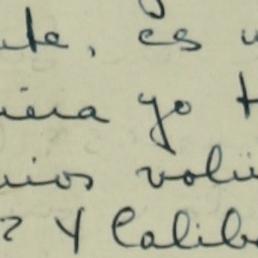 nte, es
iera yo t
nios volú
? Y Calib